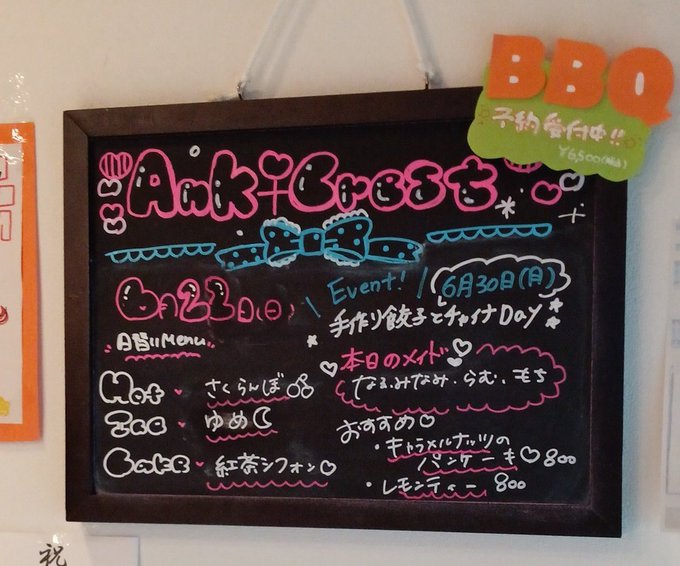 BBQ
予約受付中!!
¥6,500(税込)
Ank♡Crest
6月22日(日)
日替りMenu
Hot ♥ さくらんぼ
Ice ♥ ゆめ
Cake ♥ 紅茶シフォン♡
\ Event! /
6月30日(月)
手作り餃子とチャイナDay
本日のメイド
なる.みなみ.らむ.もち
おすすめ♡
・キャラメルナッツの
パンケーキ♡800
・レモンティー 800
祝